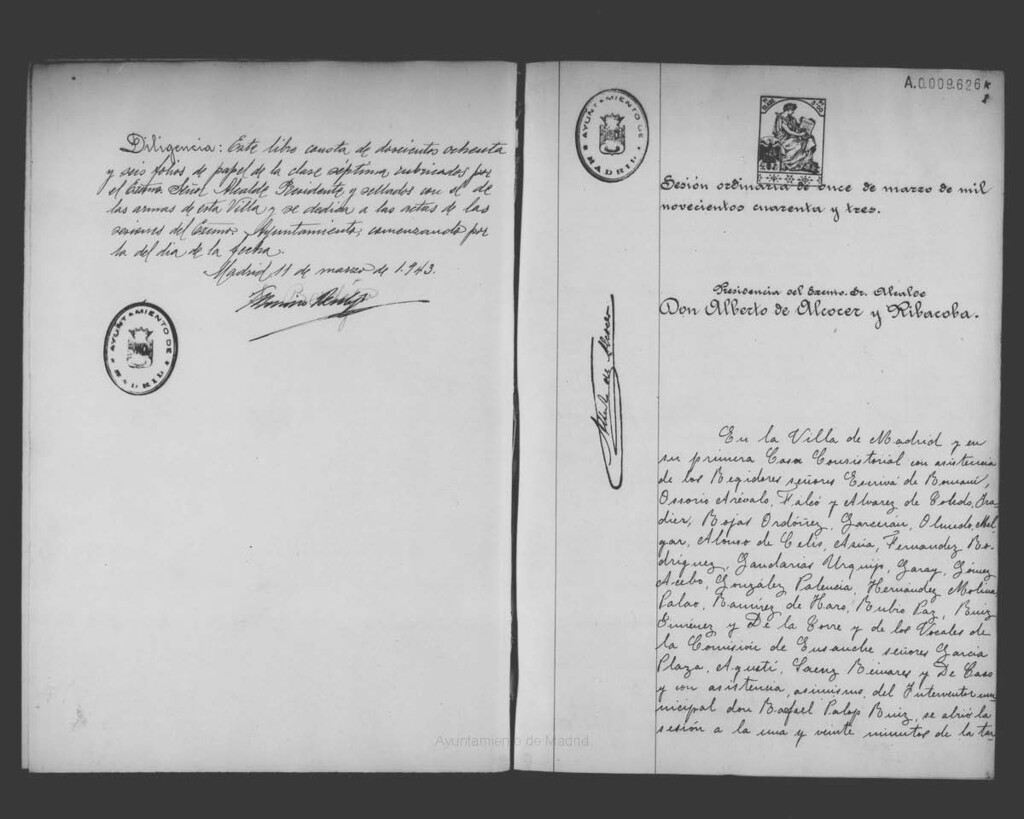 Diligencia: Este libro consta de doscientos ochenta
y seis folios de papel de la clase séptima rubricados por
el Excmo. Señor Alcalde Presidente y sellados con el de
las armas de esta Villa y se dedica a las actas de las
sesiones del Excmo. Ayuntamiento, comenzando por
la del dia de la fecha.
Madrid 11 de marzo de 1.943.
AYUNTAMIENTO DE
MADRID
A.0.009.626
AYUNTAMIENTO DE
MADRID
Sesión ordinaria de once de marzo de mil
novecientos cuarenta y tres.
Presidencia del Excmo. Sr. Alcalde
Don Alberto de Alcocer y Ribacoba.
Alberto de Alcocer
En la Villa de Madrid y en
su primera Casa Consistorial con asistencia
de los Regidores señores Escrivá de Romaní,
Ossorio Arévalo, Falcó y Alvarez de Toledo, Ira-
dier, Rojas Ordóñez, Garcerán, Olmedo, Mel-
gar, Alonso de Celis, Asúa, Fernandez Ro-
driguez, Gandarias Urquijo, Garay, Gómez
Acebo, González Palencia, Hernández Molina,
Palao, Ramírez de Haro, Rubio Paz, Ruiz
Giménez y De la Torre y de los Vocales de
la Comisión de Ensanche señores Garcia
Plaza, Agustí, Saenz y De Caso
y con asistencia, asimismo, del Interventor mu-
nicipal don Rafael Palop Ruiz, se abrió la
sesión a la una y veinte minutos de la tar-
Ayuntamiento de Madrid